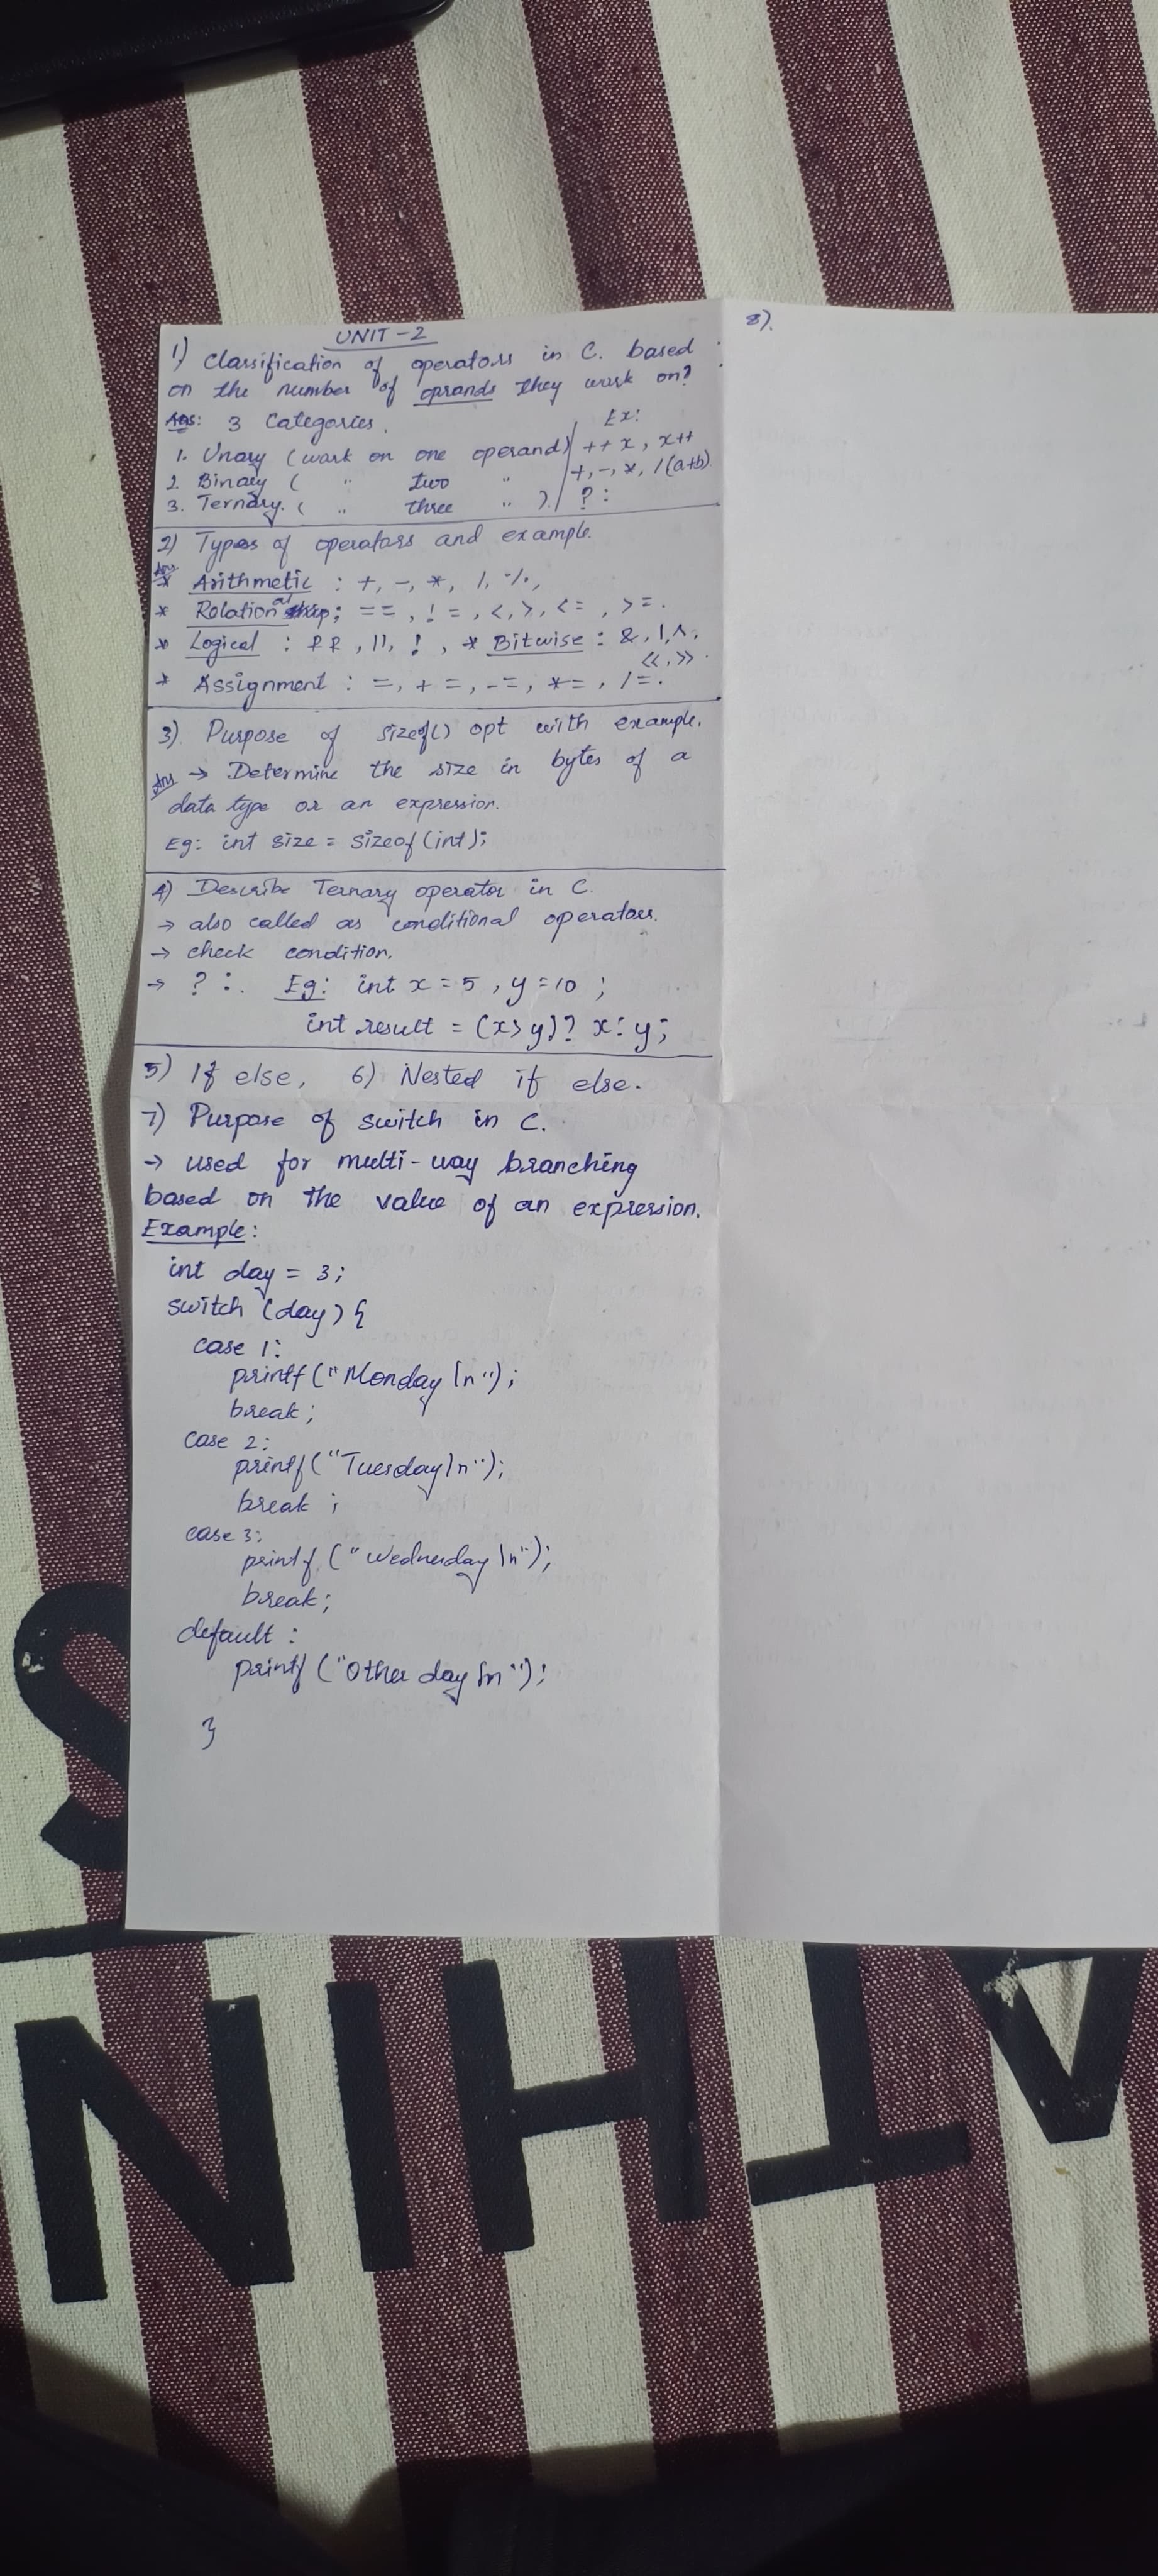 UNIT-2
1) Classification of operators in C. based
on the number of oprands they work on?
Ans: 3 Categories.
Ex:
1. Unary (work on one operand) ++x, x++
2. Binary ( " two " +, -, *, /(a+b)
3. Ternary. ( " three " ). ? :
2) Types of operators and example.
Ans
* Arithmetic : +, -, *, /, %,
* Relational : ==, !=, <, >, <=, >=.
* Logical : &&, ||, !, * Bitwise : &, |, ^,
<<, >>.
* Assignment : =, +=, -=, *=, /=.
3) Purpose of sizeof() opt with example.
Ans → Determine the size in bytes of a
data type or an expression.
Eg: int size = sizeof(int);
4) Describe Ternary operator in C.
→ also called as conditional operators.
→ check condition.
→ ? :. Eg: int x = 5, y = 10 ;
int result = (x>y)? x: y;
5) If else, 6) Nested if else.
7) Purpose of switch in C.
→ used for multi-way branching
based on the value of an expression.
Example:
int day = 3;
switch (day) {
case 1:
printf ("Monday \n");
break;
case 2:
printf ("Tuesday\n");
break ;
case 3:
printf ("Wednesday \n");
break;
default :
printf ("Other day \n");
}
8).
NIHTA